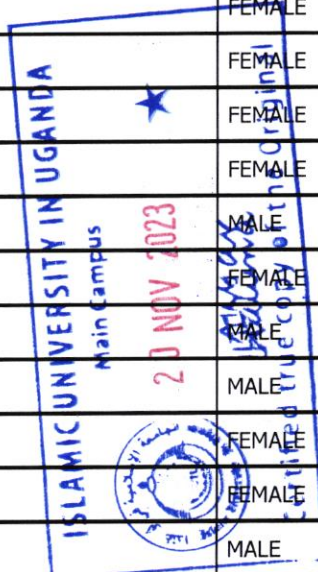 FEMALE
FEMALE
FEMALE
FEMALE
MALE
FEMALE
MALE
MALE
FEMALE
FEMALE
MALE
ISLAMIC UNIVERSITY IN UGANDA
Main Campus
20 NOV 2023
Certified true copy of the Original